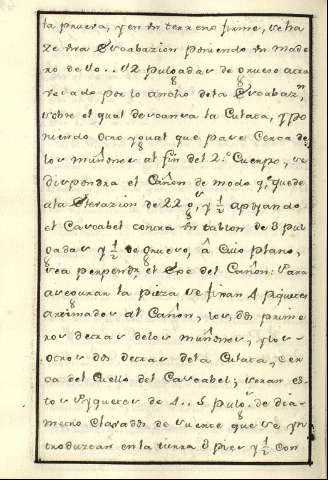 la prueva, y en un terreno firme, se ha
ze una Escabazion poniendo un made
ro de 10.. 12 pulgadas de grueso atra
vesado por lo ancho dela Escabaz.n
sobre el qual descansa la Culata, y po
niendo otro ygual que pase cerca de
los muñones al fin del 2.º Cuerpo, se
dispondra el Cañon de modo q.e quede
ala Elevazion de 22 g.s y ½ apoyando
el Cascabel contra un tablon de 3 pul
gadas y ½ de grueso, â cuio plano,
sea perpendr. el Exe del Cañon: Para
asegurar la pieza se finan 4 piquetes
arrimados al Cañon, los dos prime
ros detras delos muñones, y los
otros dos detras dela Culata, cer
ca del Cuello del Cascabel; seran es
tos Piquetes de 4.. 5 pulg.s de dia
metro clavados de suerte que se yn
troduzcan en la tierra 3 pies y ½ con